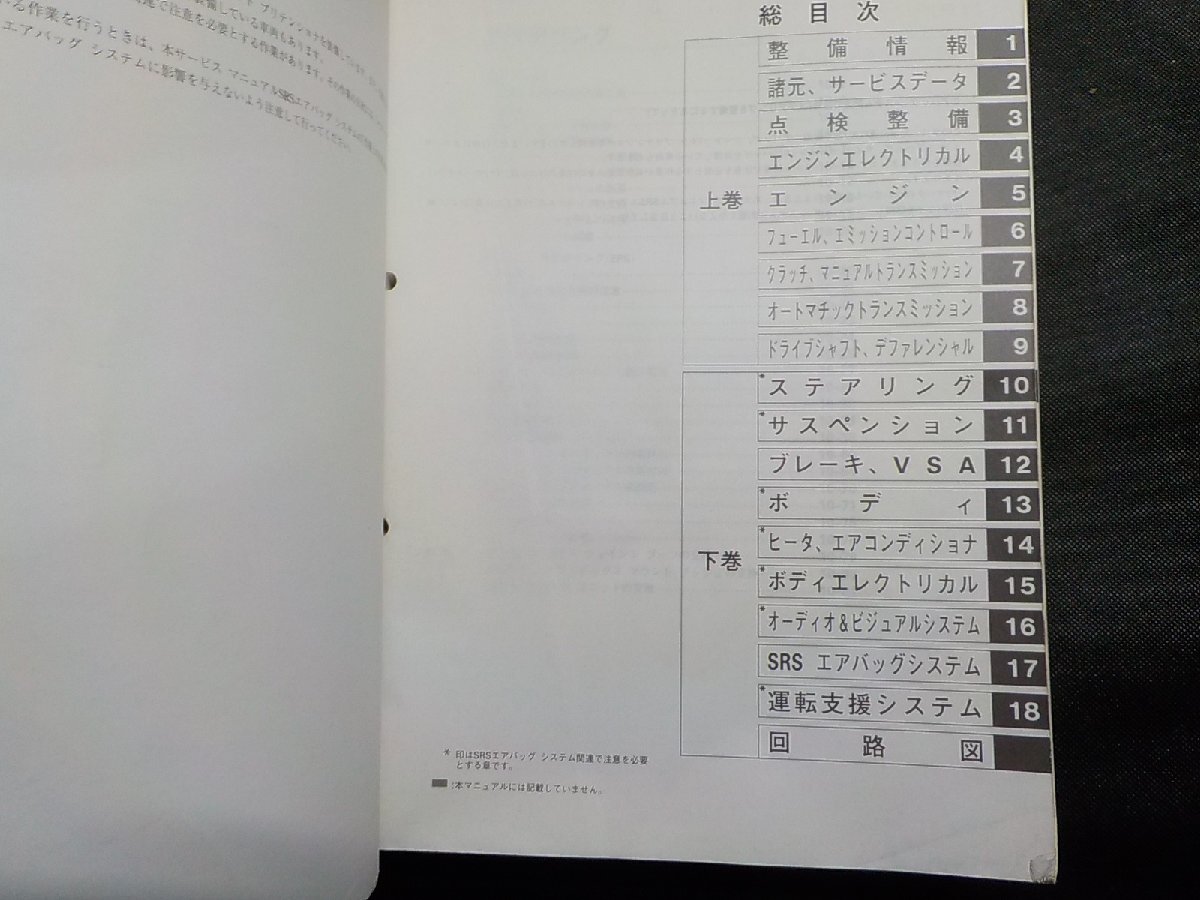 プリテンショナを装備し
備している車両もあります。
連で注意を必要とする作業があります。その作業の
作業を行うときは、本サービス マニュアルSRSエアバッグ システムの
エアバッグ システムに影響を与えないよう注意して行ってください。
総目次
上巻
整備情報 1
諸元、サービスデータ 2
点検整備 3
エンジンエレクトリカル 4
エンジン 5
フューエル、エミッションコントロール 6
クラッチ、マニュアルトランスミッション 7
オートマチックトランスミッション 8
ドライブシャフト、デファレンシャル 9
下巻
*ステアリング 10
*サスペンション 11
ブレーキ、VSA 12
*ボディ 13
*ヒータ、エアコンディショナ 14
*ボディエレクトリカル 15
*オーディオ&ビジュアルシステム 16
SRS エアバッグシステム 17
*運転支援システム 18
回路図
* 印はSRSエアバッグ システム関連で注意を必要
とする章です。
:本マニュアルには記載していません。